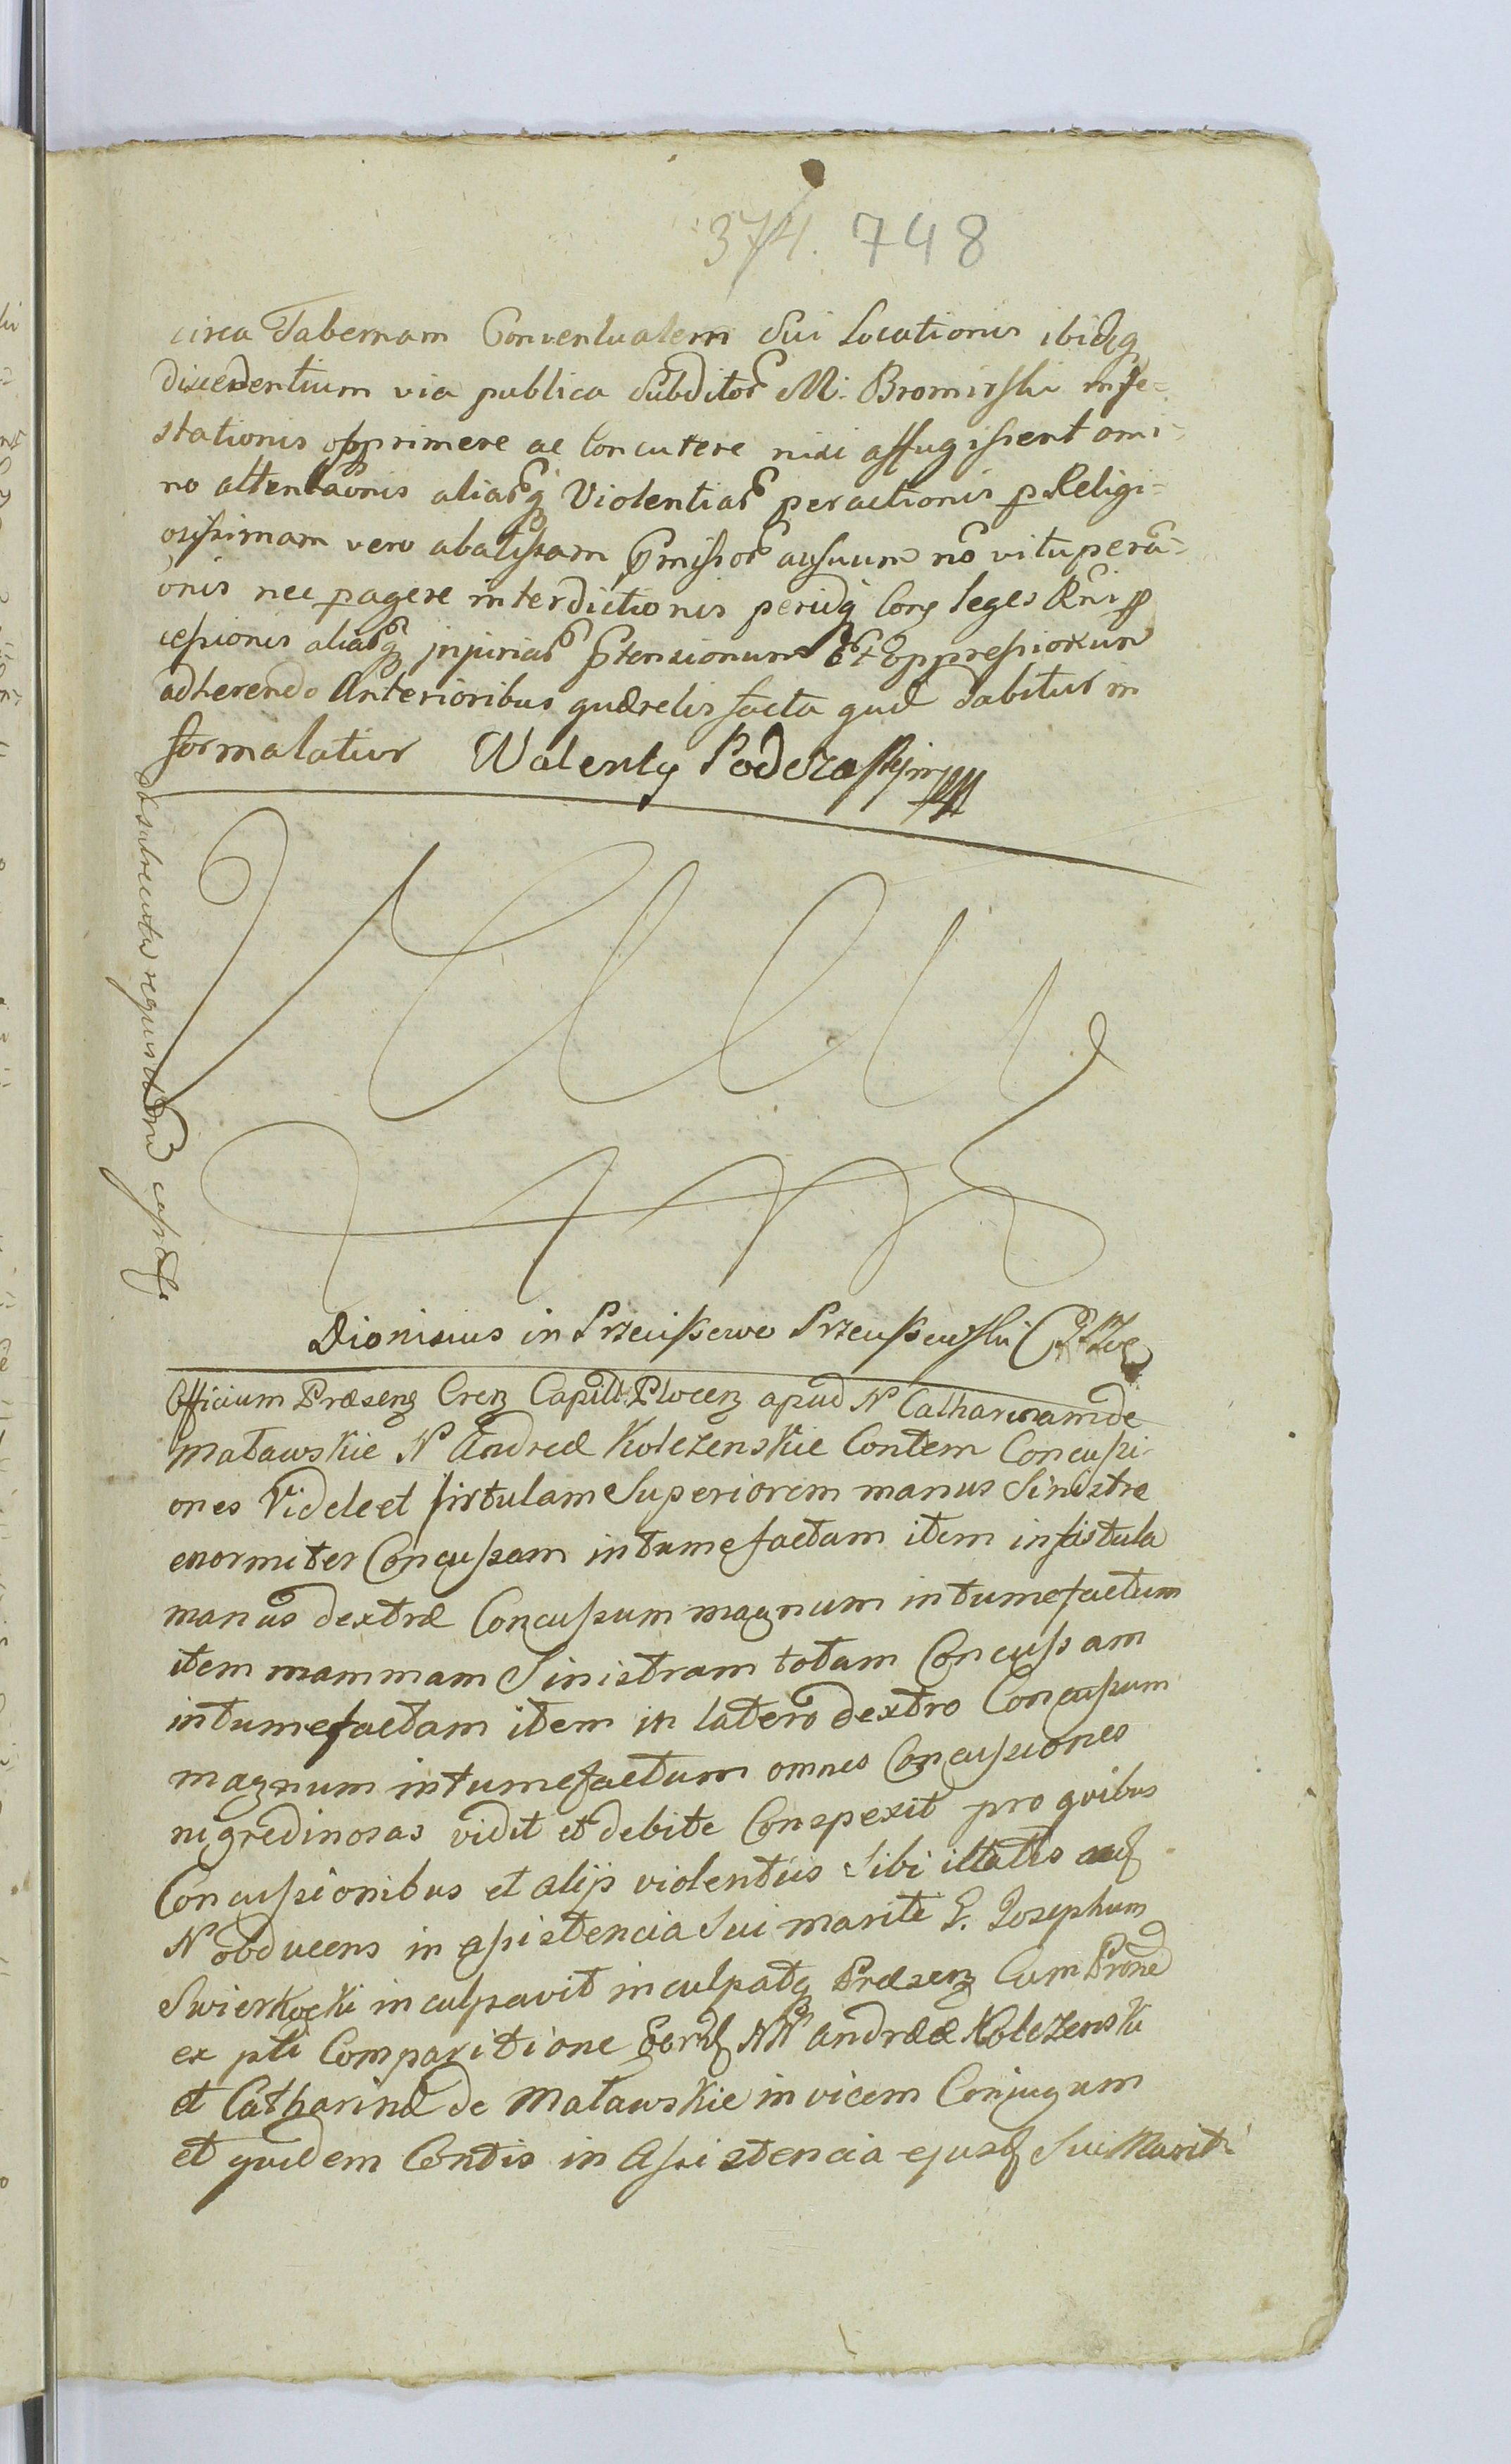 374. 748
circa Tabernam Conventualem Sui Locationis ibidq
discedentium via publica Subditor M: Bromirski infe=
stationis opprimere ac Concutere nisi affugissent omi=
no attentaonis aliarq Violentiar peractionis p Religi=
osissimam vero abatissam pmissor ausuum no vitupera=
onis nec pagere interdictionis periuq Cong leges Rni p
cessionis aliarq injuriar ptensionum Et Oppressionum
adherendo Anterioribus quærelis facta quæ dabitur in
formalatius Walenty Podczaski mp
Dionisius in Przeciszewo Przeciszewski
Officium Præsenz Crenz Capitl: Plocenz apud N Catharinam de
Matawskie N Andreæ Kolczenskie Contem Concussi-
ones Videlcet fistulam Superiorem manus Sinistre
enormiter Concussam intumefactam item in fistula
manus dextræ Concussum magnum intumefactum
item mammam Sinistram totam Concussam
intumefactam item in latero dextro Concussum
magnum intumefactum omnes Concussiones
nigredinosas vidit et debite Conspexit pro quibus
Concussionibus et alijs violentiis Sibi illatis
N obducens in assistencia Sui mariti G. Josephum
Swierkocki inculpavit inculpatq Præsenz Cum
ex pti Comparitione NN Andreæ Kolczenski
et Catharinæ de Matawskie in vicem Conjugum
et quidem Contis in Assistencia ejusd Sui Mariti